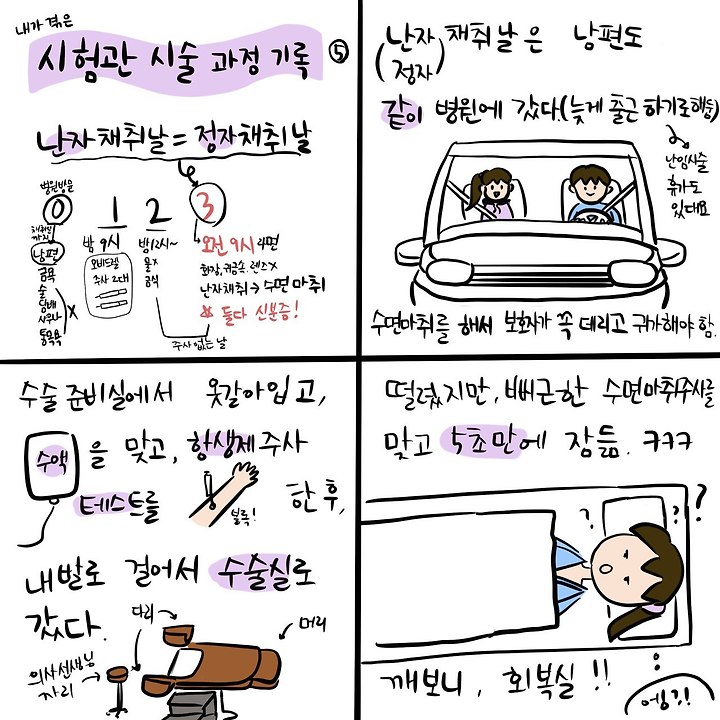 내가 겪은
시험관 시술 과정 기록 ⑤
난자채취날 = 정자채취날
병원방문
0 1 2 3
채취날
까지
남편
금욕
술
담배
사우나
통목욕
X
밤 9시
오비드렐
주사 2대
밤12시~
물X
금식
주사 없는 날
오전 9시
화장, 귀금속, 렌즈X
난자채취 → 수면마취
※ 둘다 신분증!
(난자
정자) 채취날은 남편도
같이 병원에 갔다(늦게 출근하기로해둠)
난임시술
휴가도
있대요
수면마취를 해서 보호자가 꼭 데리고 귀가해야 함.
수술 준비실에서 옷갈아입고,
수액 을 맞고, 항생제주사
테스트를 한 후,
볼록!
내발로 걸어서 수술실로
갔다.
다리
머리
의사선생님
자리
떨렸지만, 뻐근한 수면마취주사를
맞고 5초만에 잠듦. ㅋㅋㅋ
? ? ?
깨보니, 회복실!!
엥?!